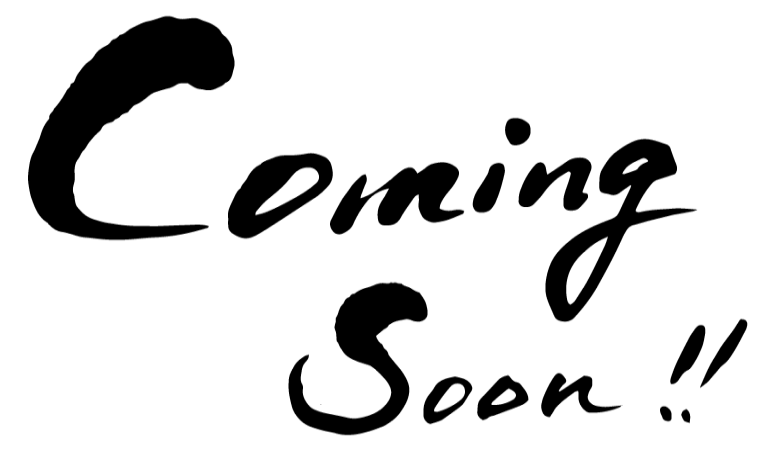 Coming
Soon!!